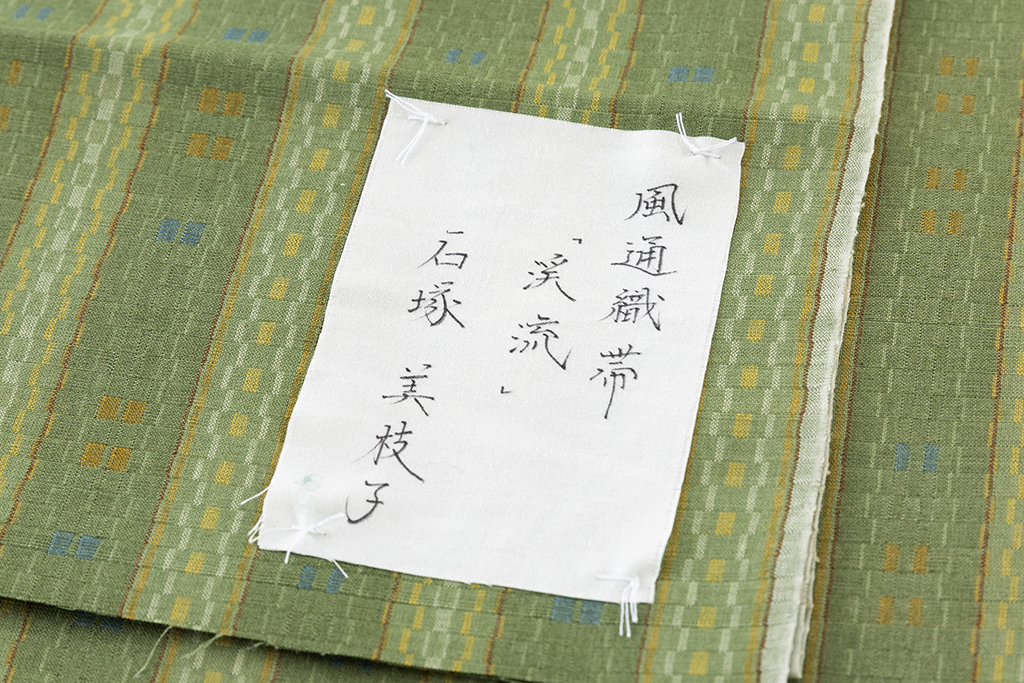 風通織帯
「渓流」
石塚 美枝子